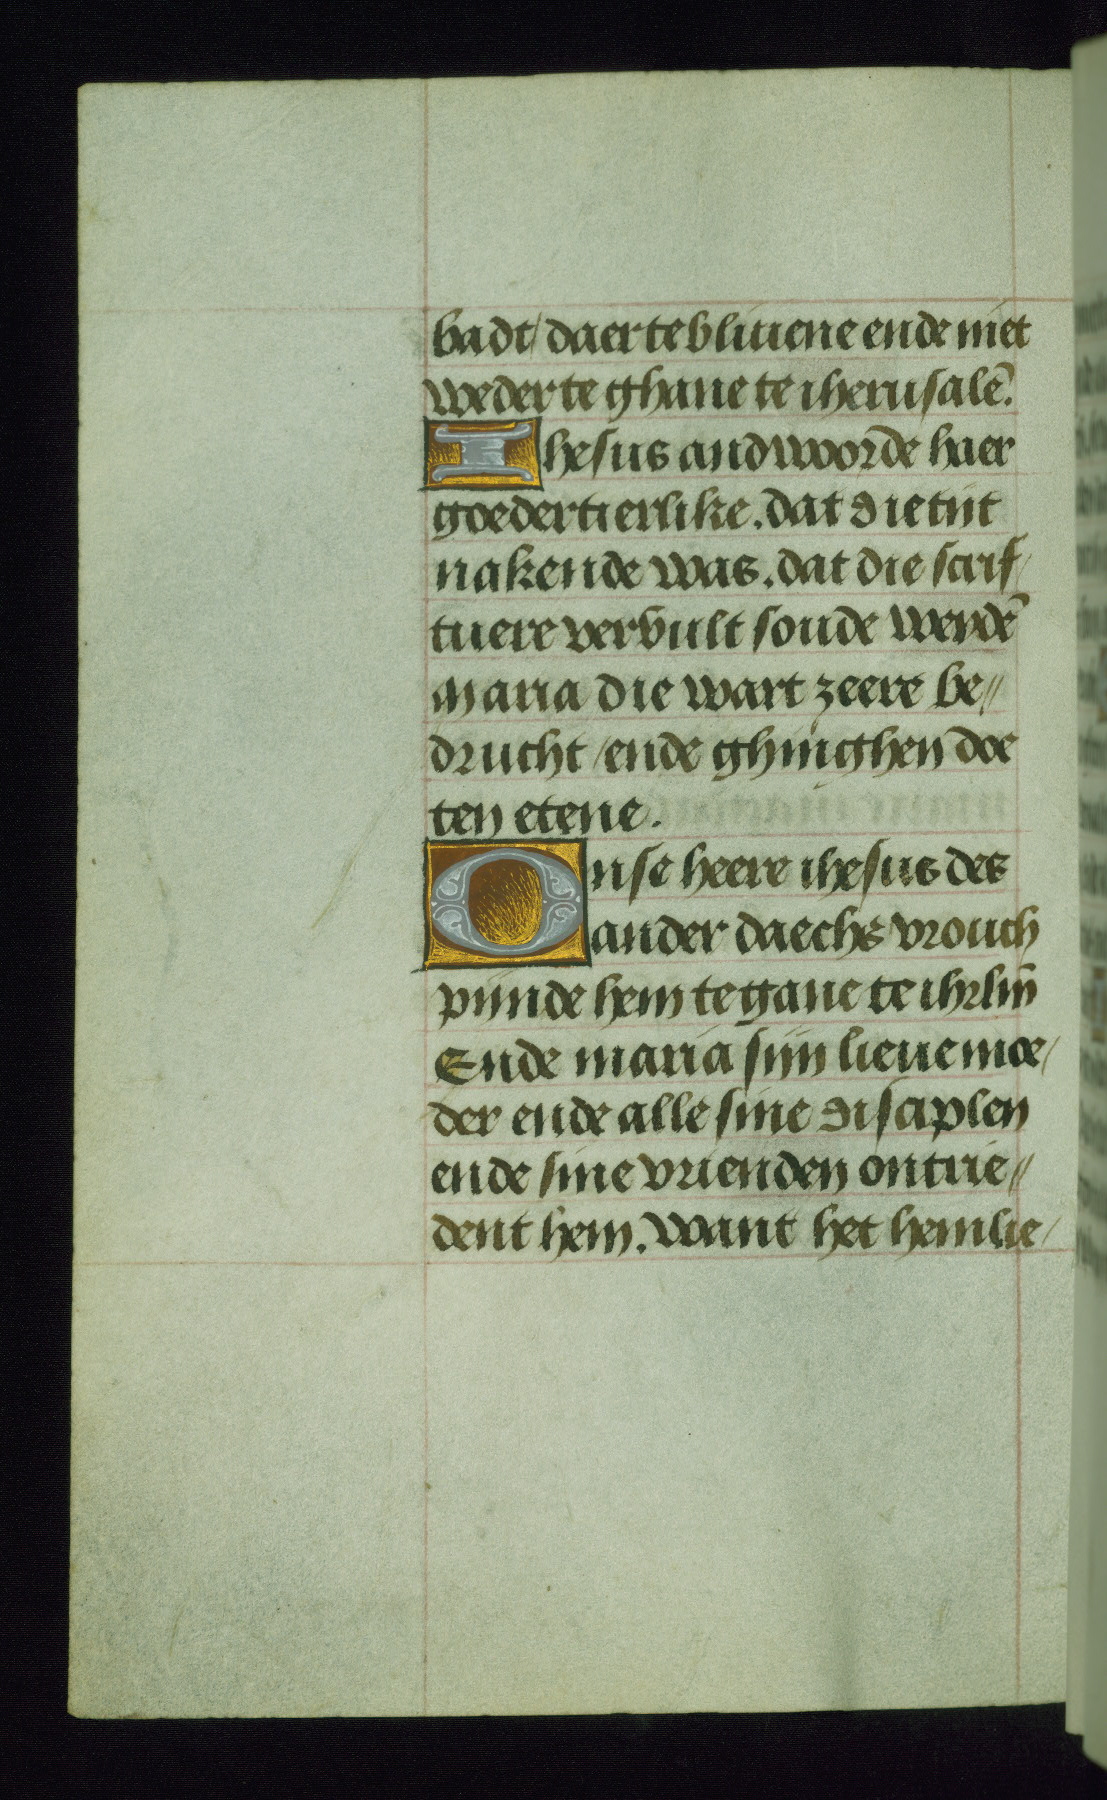 badt / daer te bliuene ende niet
weder te ghane te iherusalē.
Ihesus andworde haer
goedertierlike. dat die tijt
nakende was. dat die scrif/
tuere vervult soude werdē
Maria die wart zeere be//
drucht / ende ghinghen doe
ten etene.
Onse heere ihesus des
ander daechs vrouch
pijnde hem te gane te ihrlm̄
Ende maria sijn lieue moe/
der ende alle sine disciplen
ende sine vrienden ontrie//
dent hem. Want het hemlie/